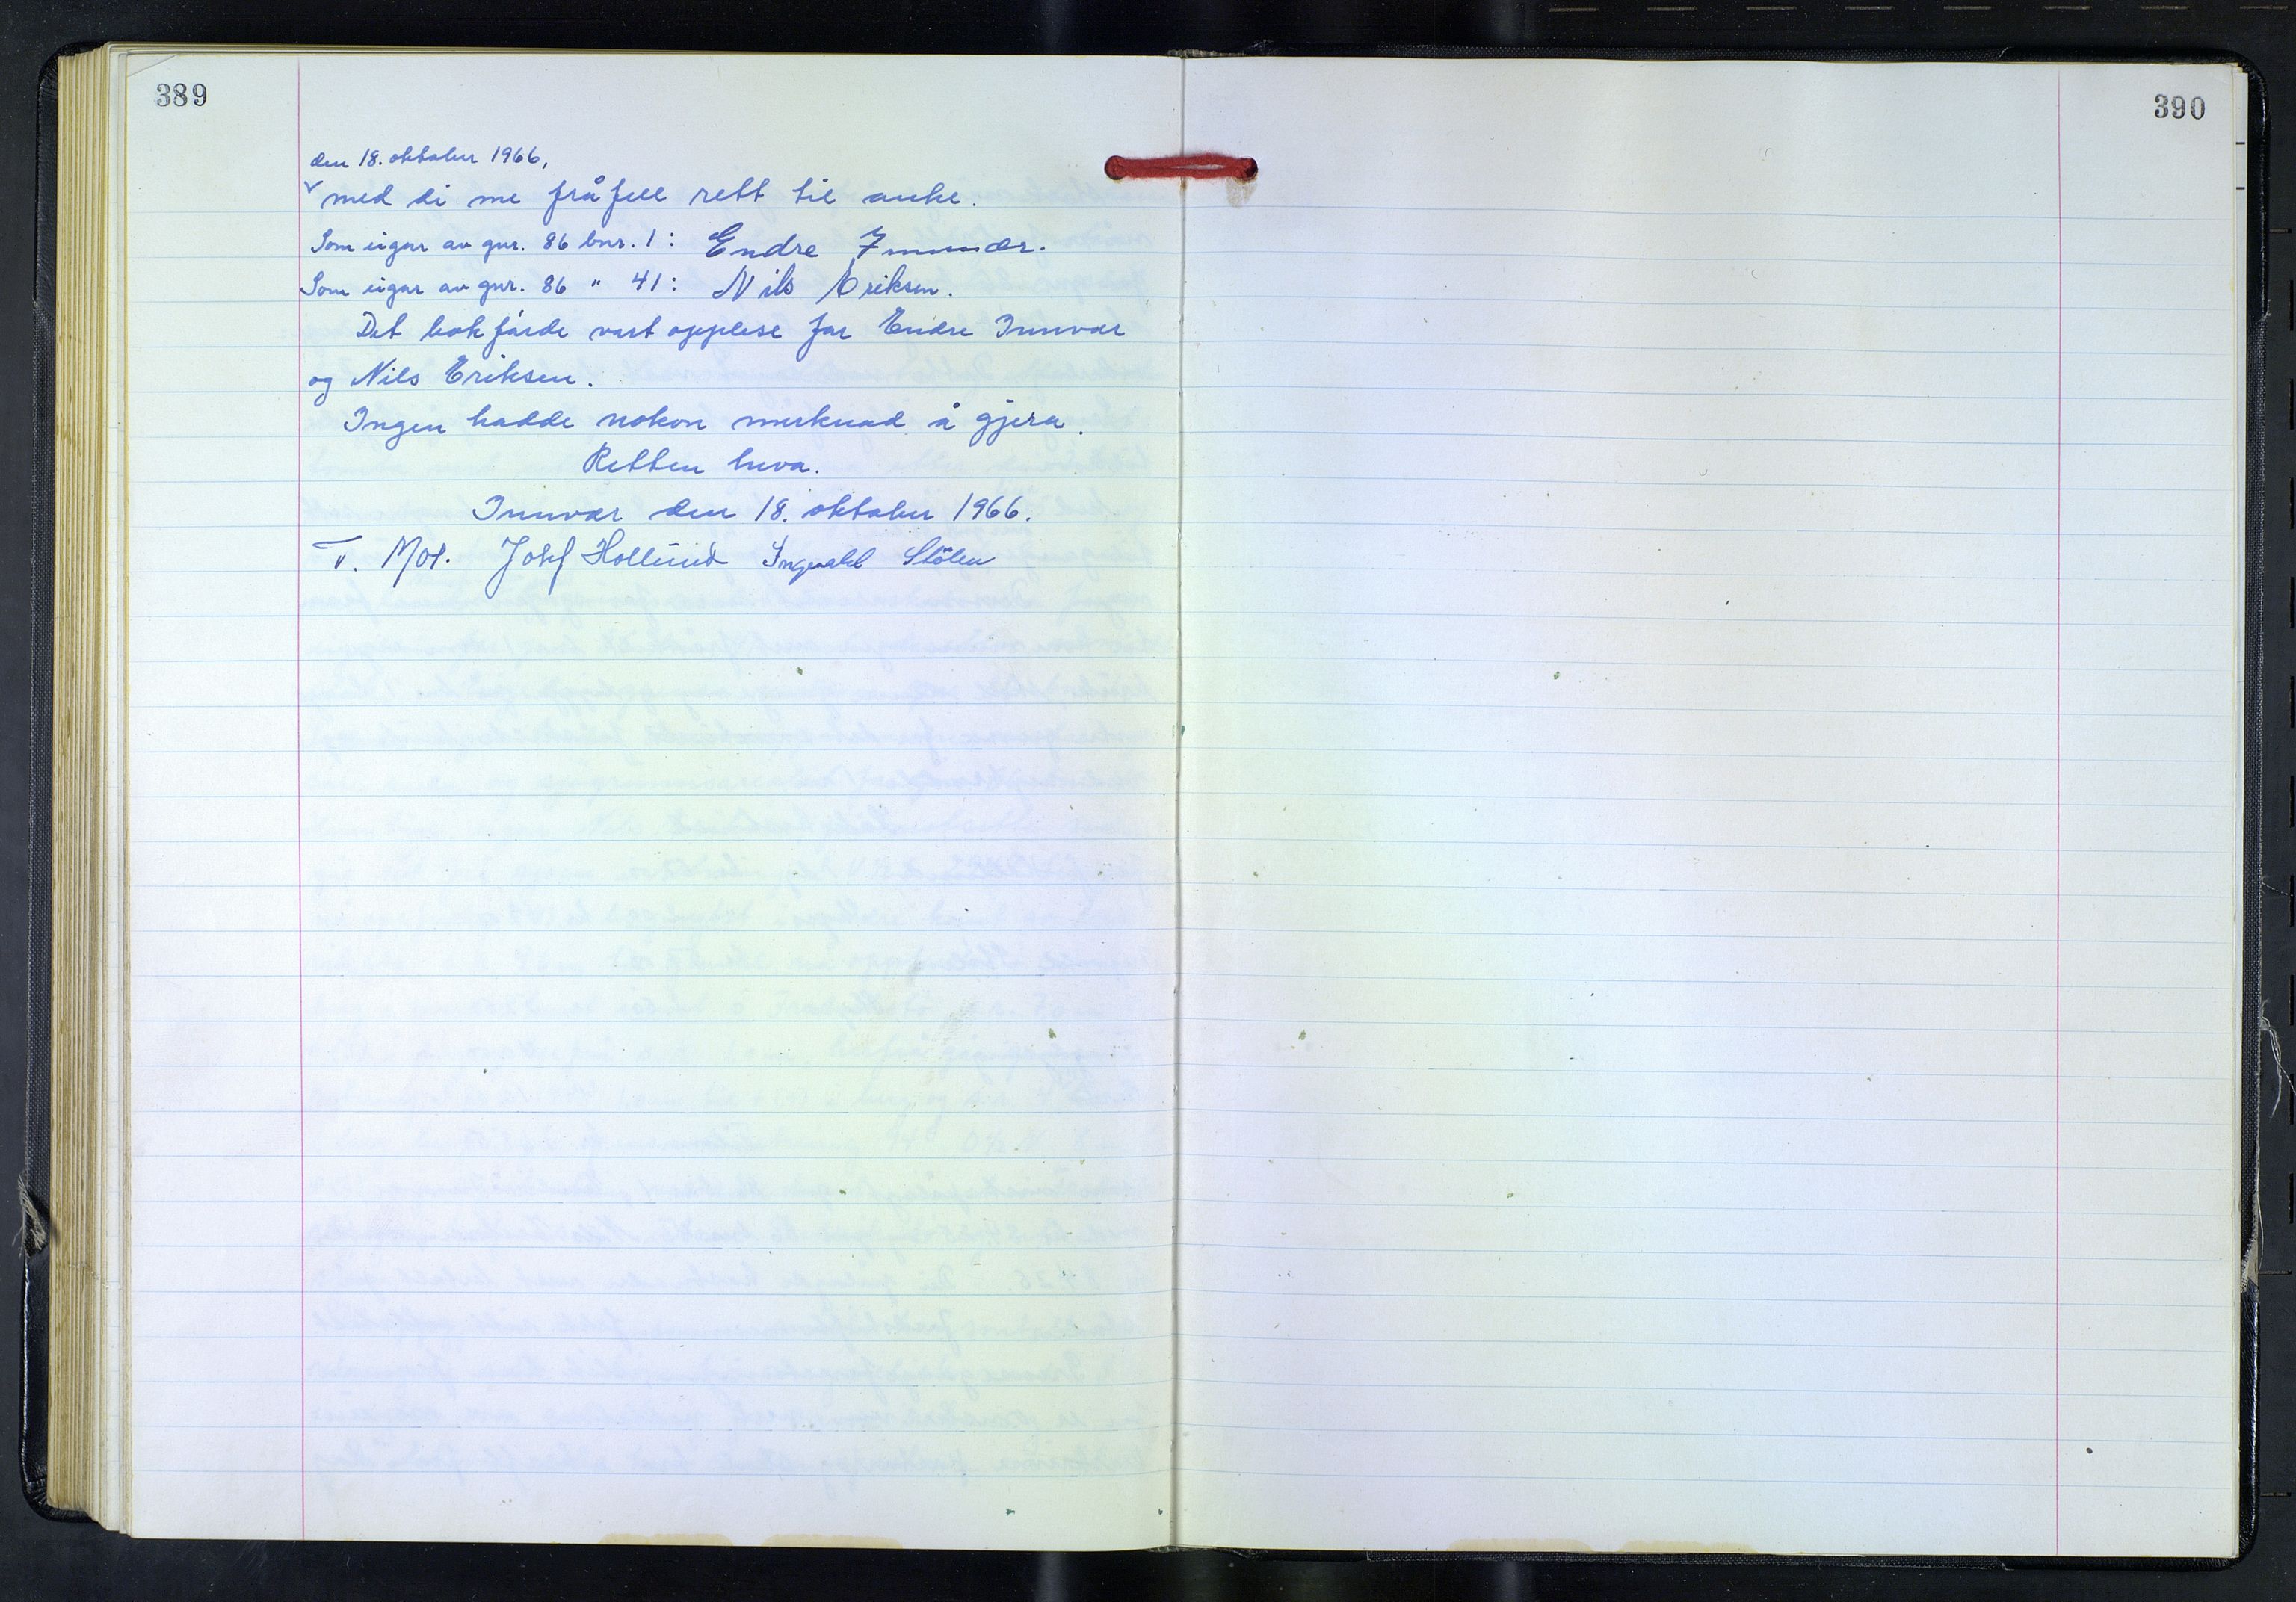 389
390
den 18. oktober 1966,
v med di me fråfell rett til anke.
Som eigar av gnr. 86 bnr. 1: Endre Innvær.
Som eigar av gnr. 86 " 41: Nils Eriksen.
Det bokførde vart opplese for Endre Innvær
og Nils Eriksen.
Ingen hadde nokon merknad å gjera.
Retten heva.
Innvær den 18. oktober 1966.
Josef Hollund Ingvald Stölen